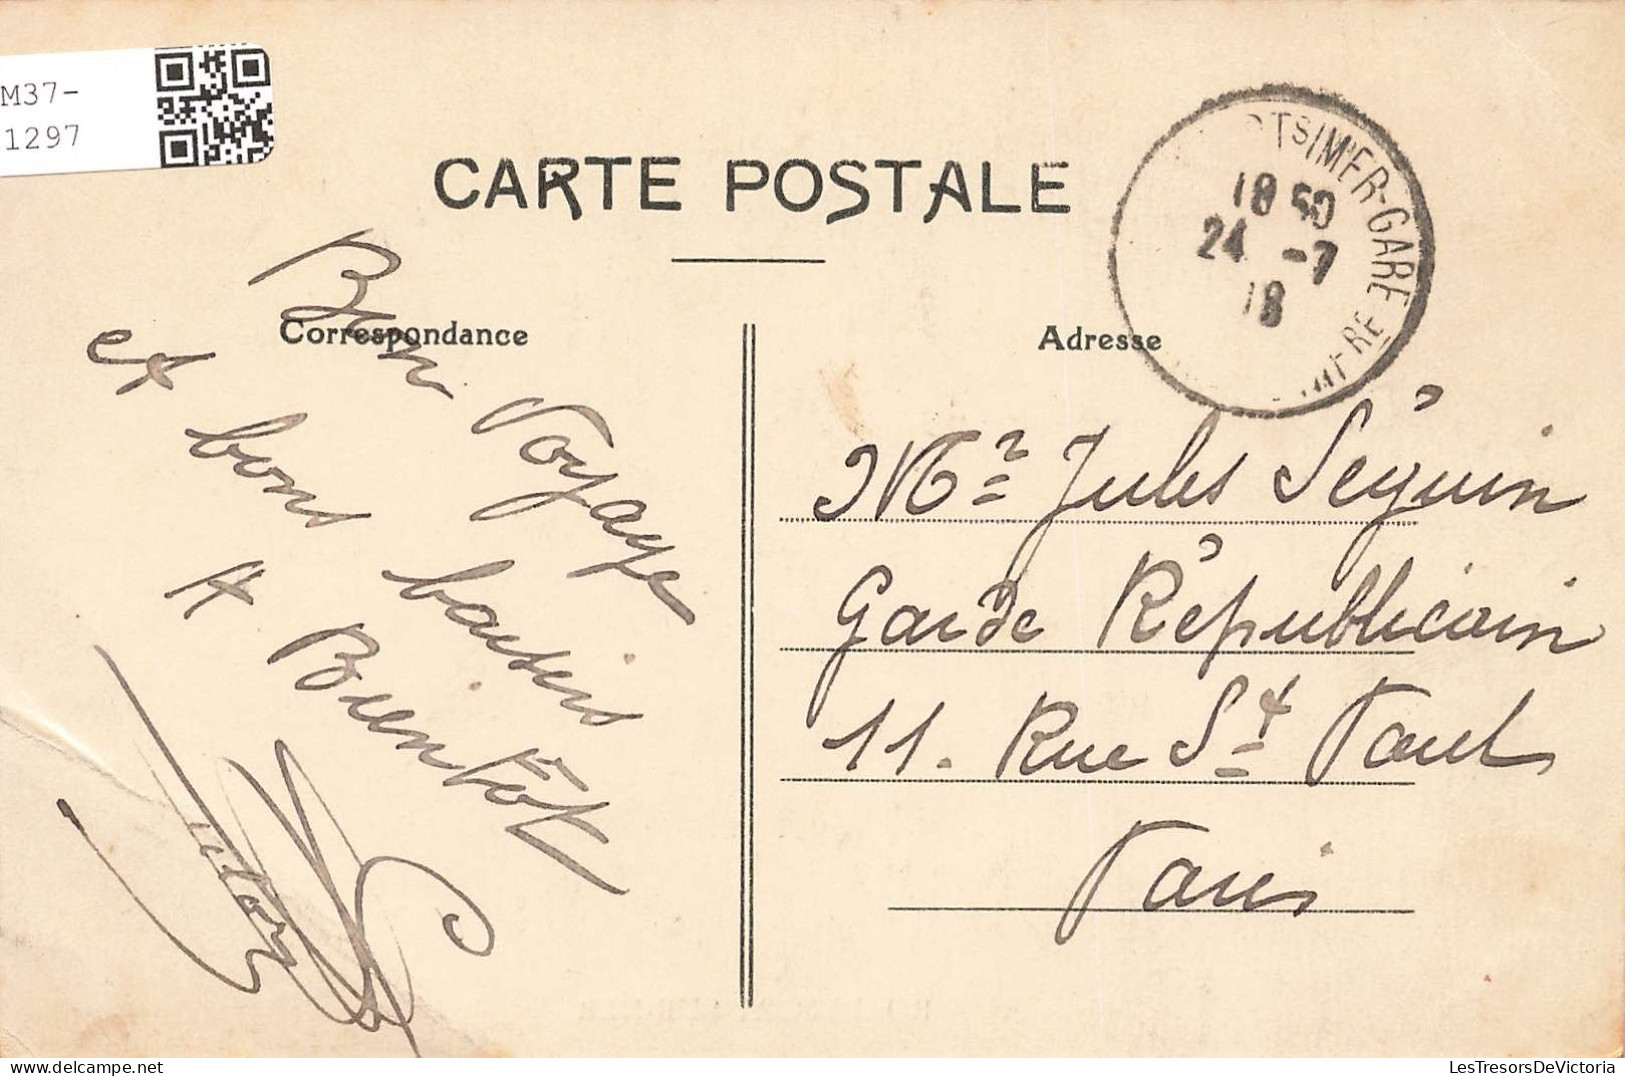 M37-
1297
CARTE POSTALE
TSIMER-GARE
18 50
24 -7
18
Correspondance
Adresse
Bon Voyage
et bons baisers
A Bientôt
Mr Jules Séguin
Garde Républicain
11. Rue St Paul
Paris
LesTresorsDeVictoria